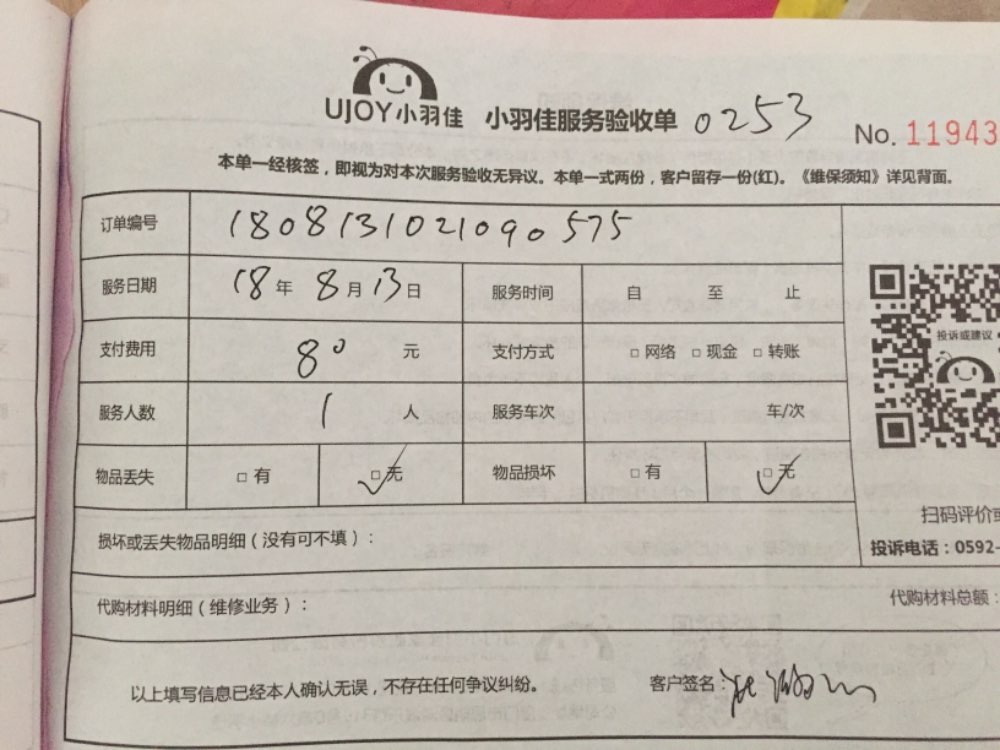 UJOY小羽佳 小羽佳服务验收单 0253 No. 11943
本单一经核签，即视为对本次服务验收无异议。本单一式两份，客户留存一份(红)。《维保须知》详见背面。
订单编号 1808131021090575
服务日期 18年 8月13日 服务时间 自 至 止
支付费用 80 元 支付方式 □网络 □现金 □转账
投诉或建议
服务人数 1 人 服务车次 车/次
物品丢失 □有 □无 物品损坏 □有 □无
扫码评价或
损坏或丢失物品明细（没有可不填）：
投诉电话：0592-
代购材料明细（维修业务）：
代购材料总额：
以上填写信息已经本人确认无误，不存在任何争议纠纷。 客户签名：